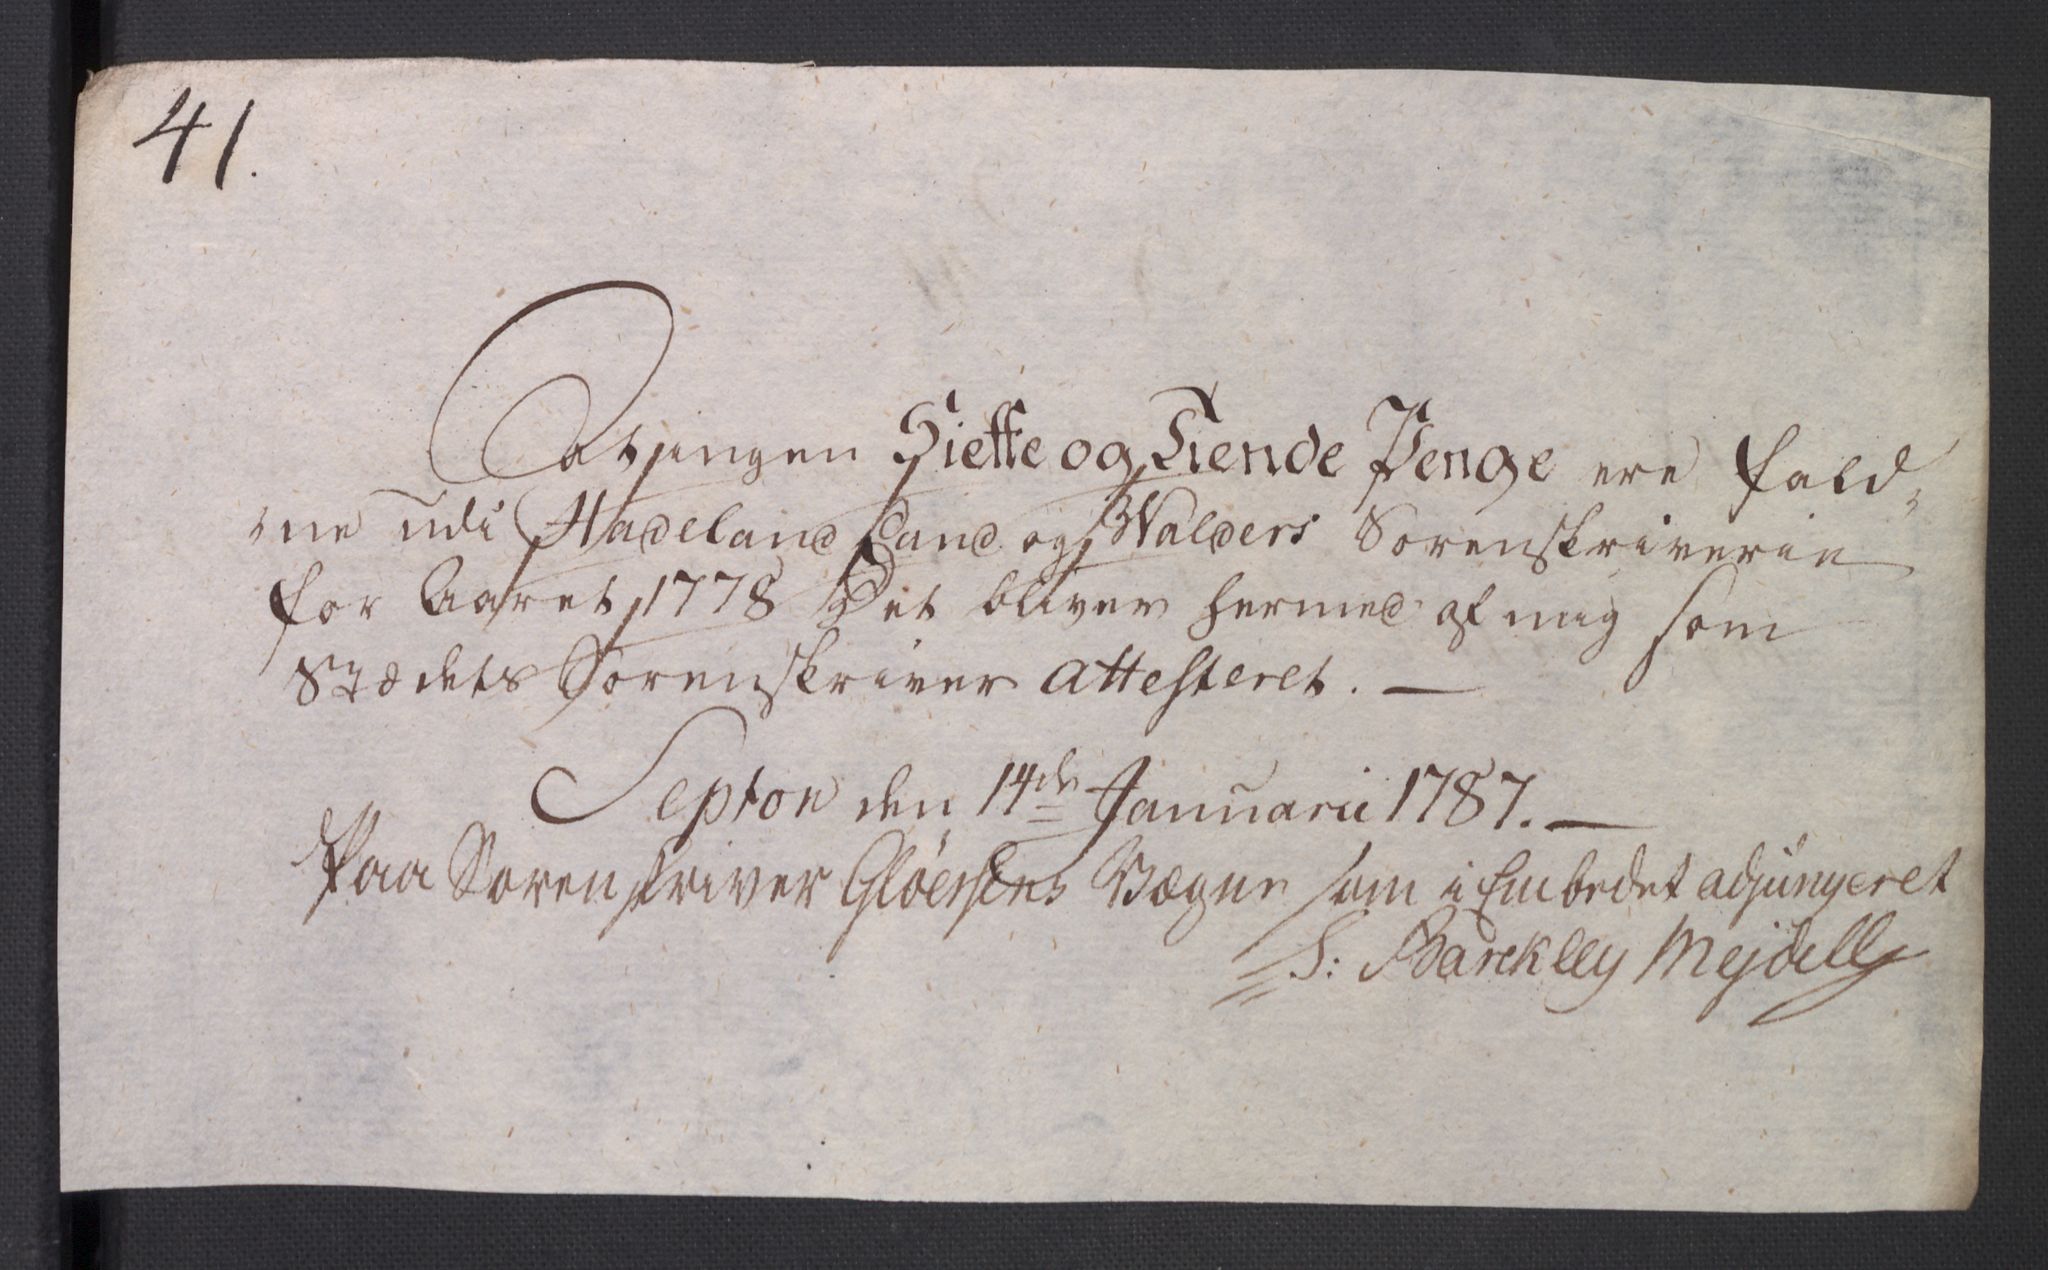 41.
At ingen Siette og Tiende Penge ere fald-
-ne udi Hadeland Land og Walders Sorenskriverie
for Aaret 1778 Det bliver hermed af mig som
Stædets Sorenskriver attesteret. —
Septon den 14de Januarii 1787. —
Paa Sorenskriver Gløersens Vægne som i Embedet adjungeret
S: Barckley Mejdell